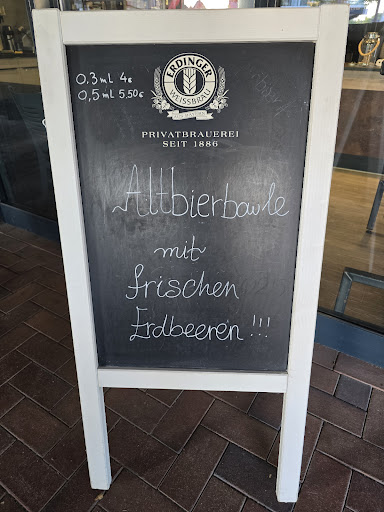 0,3mL 4€
0,5mL 5,50€
ERDINGER
WEISSBRÄU
PRIVATBRAUEREI
SEIT 1886
Altbierbowle
mit
frischen
Erdbeeren!!!